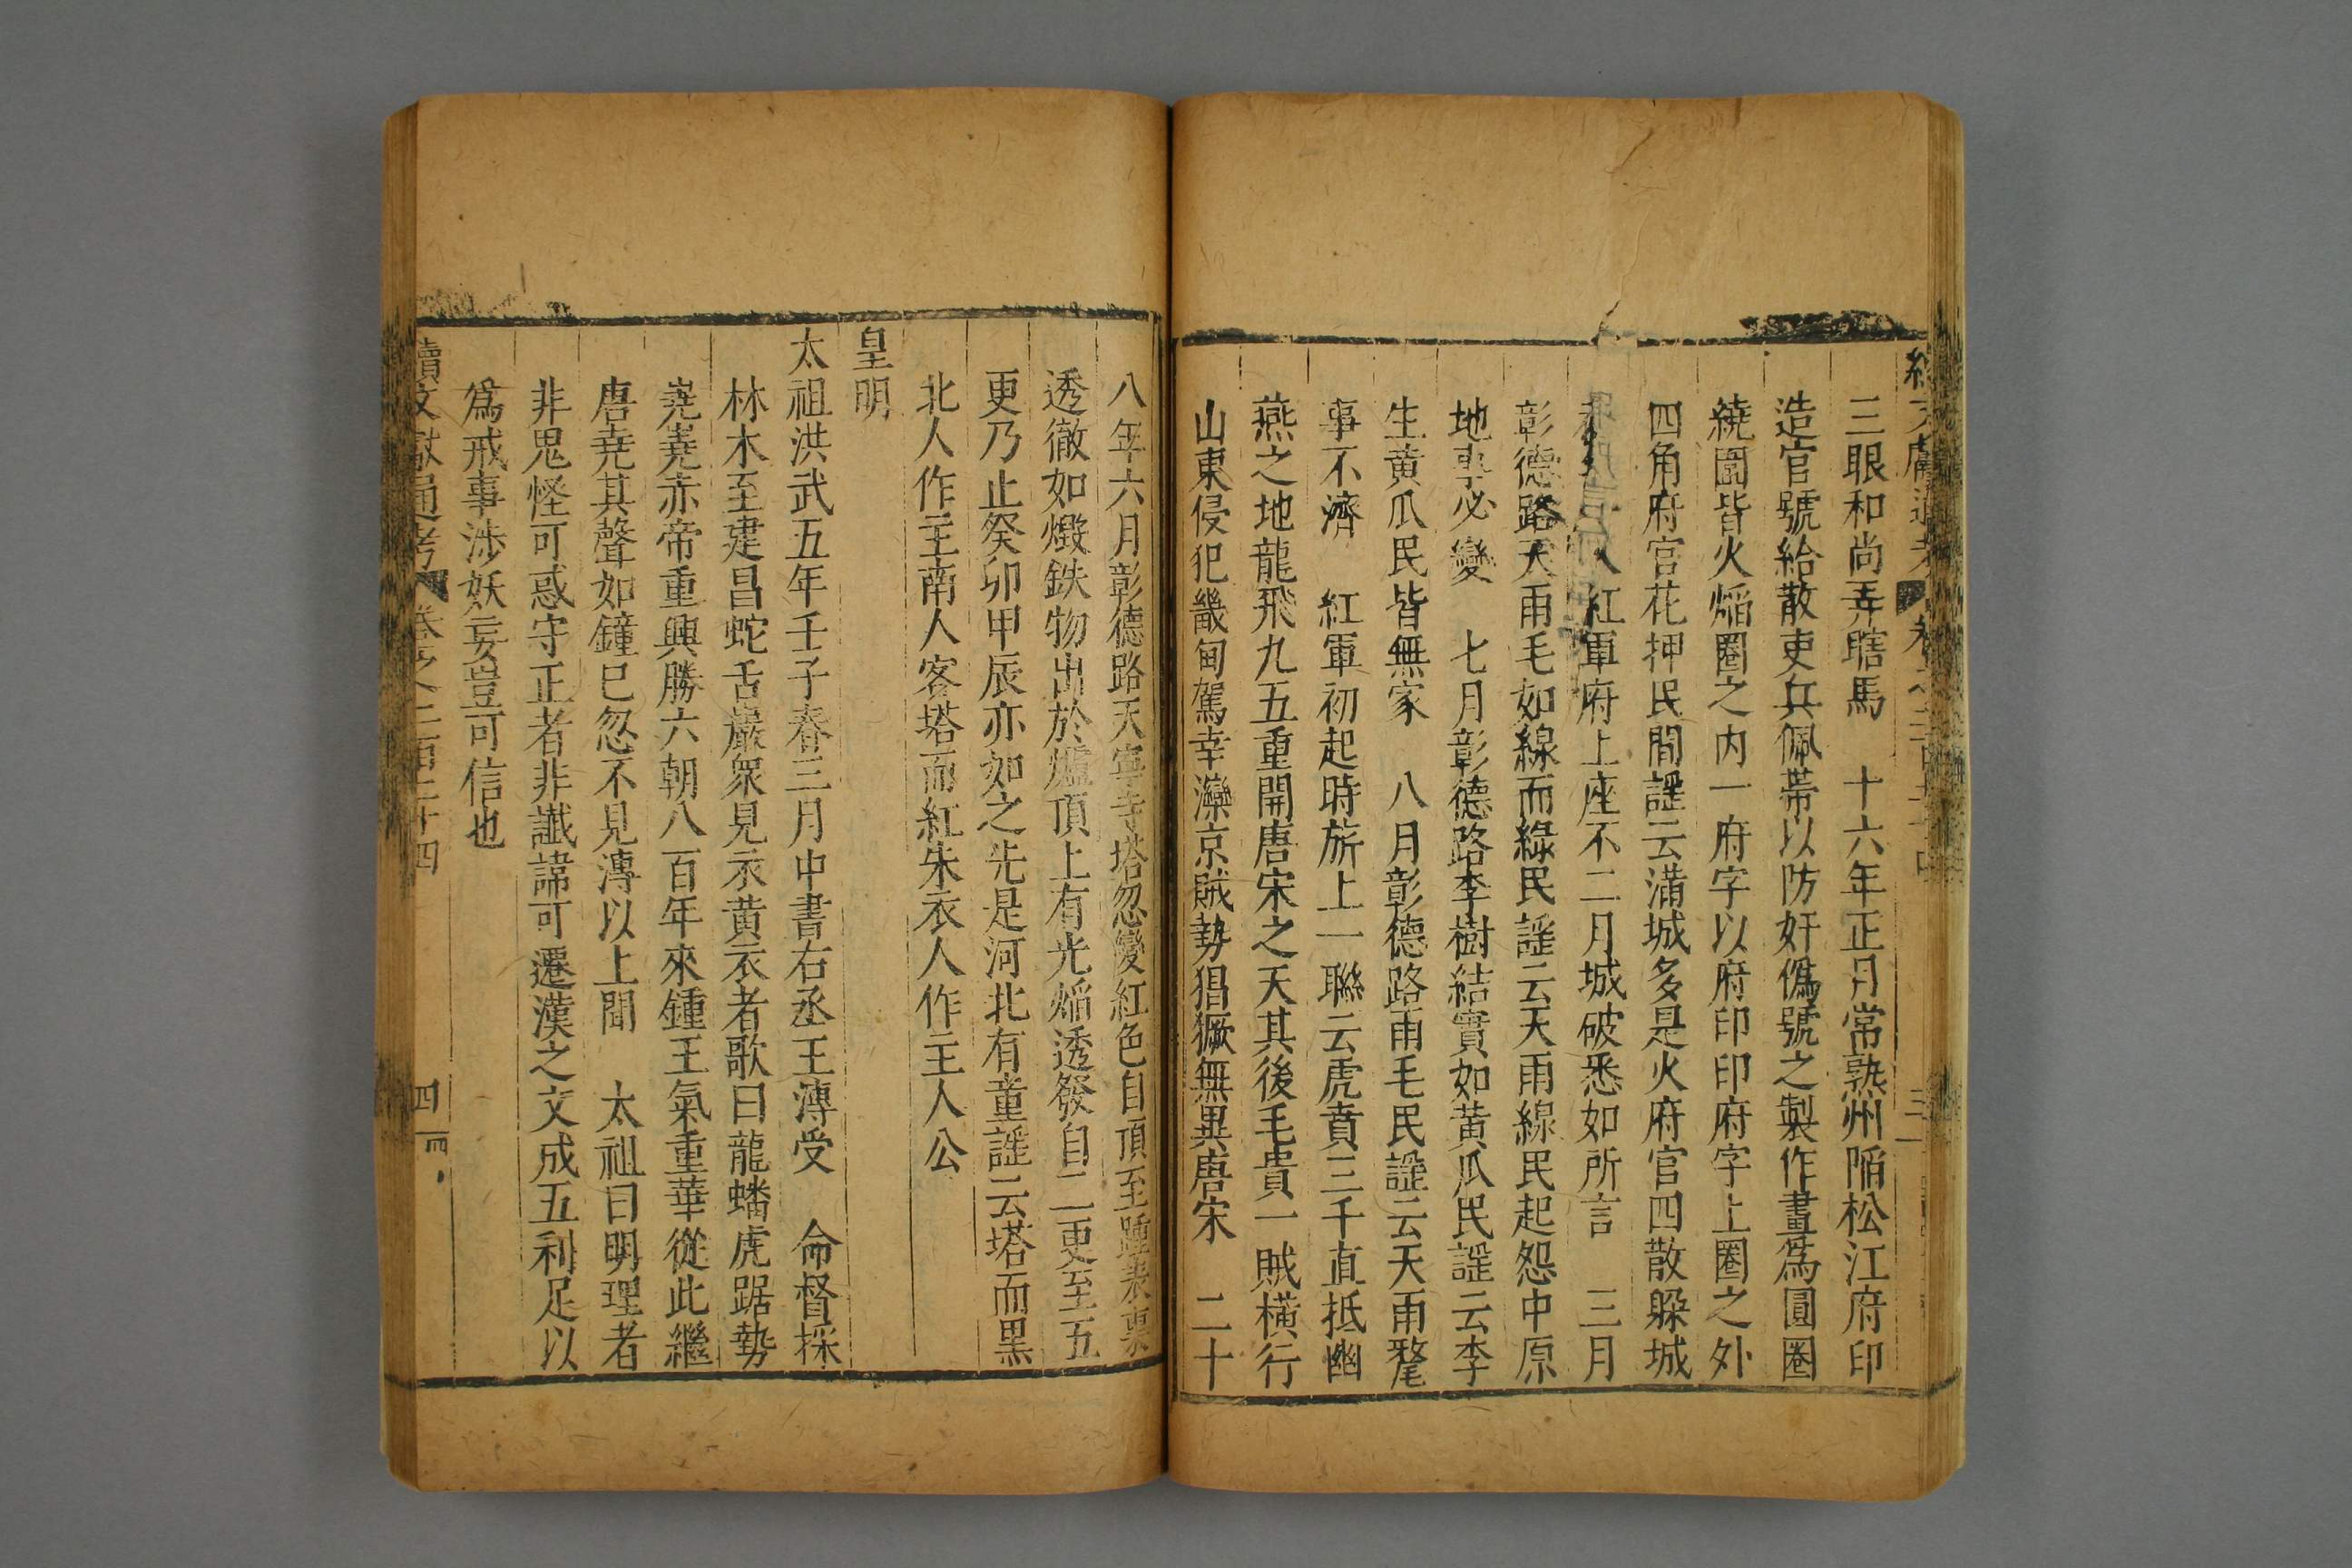 三眼和尚弄瞎馬　十六年正月常熟州陷松江府印
造官號給散吏兵佩帶以防奸僞號之製作畫爲圓圈
繞圈皆火焰圈之内一府字以府印印府字上圈之外
四角府官花押民間謡云滿城多是火府官四散躲城
人紅軍府上座不二月城破悉如所言　三月
彰德路天雨毛如線而綠民謡云天雨線民起怨中原
地事必變　七月彰德路李樹結實如黃瓜民謡云李
生黃瓜民皆無家　八月彰德路雨毛民謡云天雨氂
事不濟　紅軍初起時旂上一聯云虎賁三千直抵幽
燕之地龍飛九五重開唐宋之天其後毛貴一賊橫行
山東侵犯畿甸駕幸灤京賊勢猖獗無異唐宋　二十
八年六月彰德路天寧寺塔忽變紅色自頂至踵表裏
透徹如煅鉄物出於爐頂上有光焰透發自二更至五
更乃止癸卯甲辰亦如之先是河北有童謡云塔而黑
北人作主南人客塔而紅朱衣人作主人公
皇明
太祖洪武五年壬子春三月中書右丞王溥受　命督採
林木至建昌蛇舌巖衆見衣黃衣者歌曰龍蟠虎踞勢
嶤嶤赤帝重興勝六朝八百年來鍾王氣重華從此繼
唐堯其聲如鐘已忽不見溥以上聞　太祖曰明理者
非鬼怪可惑守正者非讖諱可遷漢之文成五利足以
爲戒事涉妖妄豈可信也
續文獻通考　卷之二百二十四　四　四